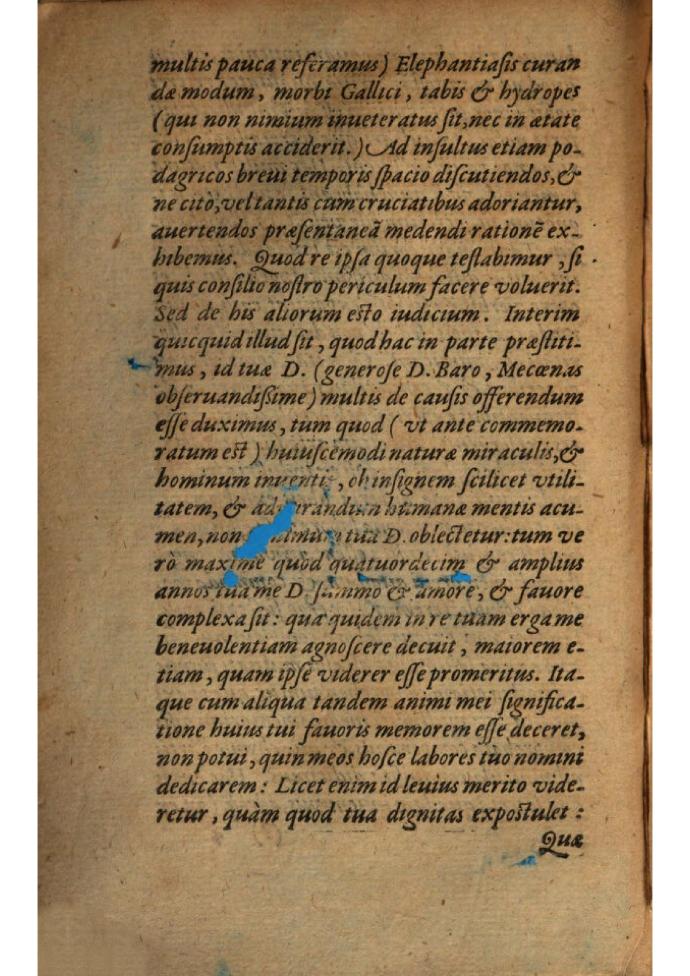 multis pauca referamus) Elephantiaſis curan
dæ modum, morbi Gallici, tabis & hydropes
(qui non nimium inueteratus ſit, nec in ætate
conſumptis acciderit.) Ad inſultus etiam po-
dagricos breui temporis ſpacio diſcutiendos, &
ne citò, vel tantis cum cruciatibus adoriantur,
auertendos præſentaneã medendi rationẽ ex-
hibemus. Quod re ipſa quoque teſtabimur, ſi
quis conſilio noſtro periculum facere voluerit.
Sed de his aliorum eſto iudicium. Interim
quicquid illud ſit, quod hac in parte præſtiti-
mus, id tuæ D. (generoſe D. Baro, Mecœnas
obſeruandiſſime) multis de cauſis offerendum
eſſe duximus, tum quod (vt ante commemo-
ratum eſt) huiuſcemodi naturæ miraculis, &
hominum inuentis, ob inſignem ſcilicet vtili-
tatem, & humanæ mentis acu-
men, non tua D. oblectetur: tum ve
rò maxime quòd quatuordecim & amplius
annos tua me D. ſummo & amore, & fauore
complexa ſit: qua quidem in re tuam erga me
beneuolentiam agnoſcere decuit, maiorem e-
tiam, quam ipſe viderer eſſe promeritus. Ita-
que cum aliqua tandem animi mei ſignifica-
tione huius tui fauoris memorem eſſe deceret,
non potui, quin meos hoſce labores tuo nomini
dedicarem: Licet enim id leuius merito vide-
retur, quàm quod tua dignitas expoſtulet:
Quæ